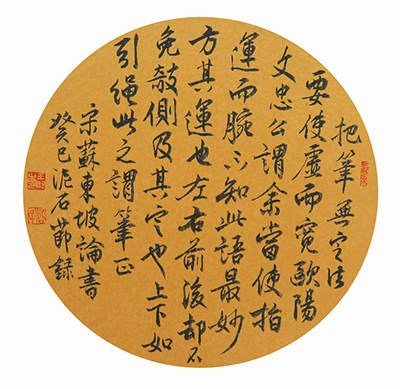 把筆無定法
要使虛而寬歐陽
文忠公謂余當使指
運而腕不知此語最妙
方其運也左右前後却不
免敧側及其定也上下如
引繩此之謂筆正
宋蘇東坡論書
癸巳泥石節録